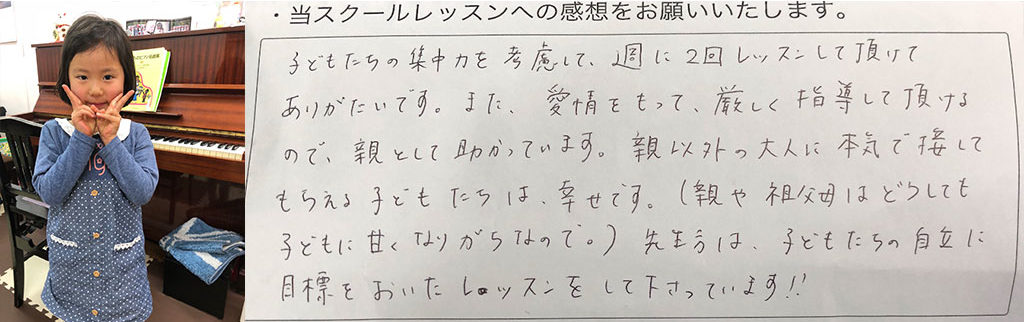 ・当スクールレッスンへの感想をお願いいたします。
子どもたちの集中力を考慮して、週に2回レッスンして頂けて
ありがたいです。また、愛情をもって、厳しく指導して頂ける
ので、親として助かっています。親以外の大人に本気で接して
もらえる子どもたちは、幸せです。(親や祖父母はどうしても
子どもに甘くなりがちなので。)先生方は、子どもたちの自立に
目標をおいたレッスンをして下さっています!!